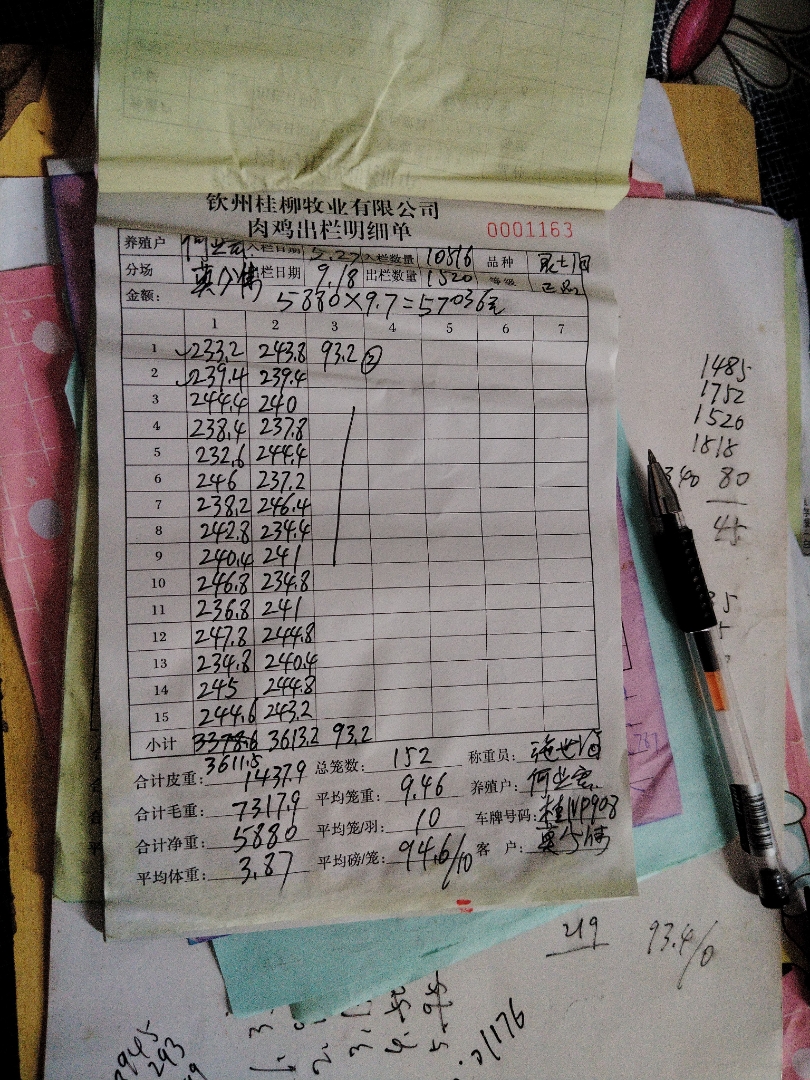 钦州桂柳牧业有限公司
肉鸡出栏明细单 0001163
养殖户 入栏日期 5.27 入栏数量 10516 品种
分场 栏日期 9.18 出栏数量 1520 等级 正品
金额: 5880×9.7=57036元
1 2 3 4 5 6 7
1 233.2 243.8 93.2 ②
2 239.4 239.4
3 244.4 240
4 238.4 237.8
5 232.6 244.4
6 246 237.2
7 238.2 246.4
8 242.8 234.4
9 240.4 241
10 246.8 234.8
11 236.8 241
12 247.8 244.8
13 234.8 240.4
14 245 244.8
15 244.6 243.2
小计 3378.6 3613.2 93.2
3611.5
合计皮重: 1437.9 总笼数: 152 称重员:
合计毛重: 7317.9 平均笼重: 9.46 养殖户:
合计净重: 5880 平均笼/羽: 10 车牌号码: 桂NP908
平均体重: 3.87 平均磅/笼: 94.6/10 客 户:
1485
1752
1520
1818
80
45
219 93.4/0
293